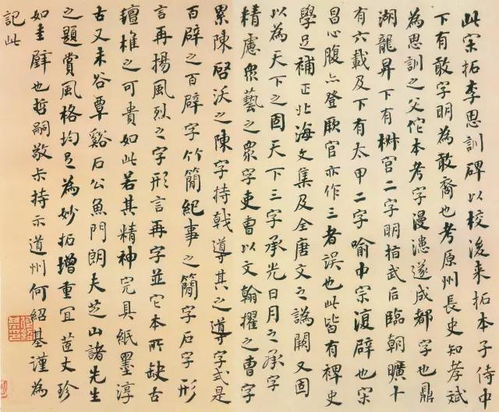 此宋拓李思訓碑以校後來拓本子侍中
下有敢字明為敢裔也考原州長史知孝斌
為思訓之父佗本考字漫漶遂成都字也鼎
湖龍昇下有官二字明指武后臨朝曠十
有六載及下有太甲二字喻中宗復辟也宗
昌心腹亦登厥官亦作三者誤也此皆有裨史
學足補正北海文集及全唐文之譌闕又固
以為天下之固天下三字承光日月之承字
精慮衆藝之衆字吏曹以文翰擢之曹字
累陳啓沃之陳字持戟導其之導字式是
百辟之百辟字竹簡紀事之簡字石字形
言再揚風烈之字形言再字並它本所缺古
氊椎之可貴如此若其精神完具紙墨淳
古又未谷覃谿石公魚門朗夫芝山諸先生
之題賞風格均足為妙拓增重宜丈珍
如圭璧也哲嗣敬持示道州何紹基謹為
記此